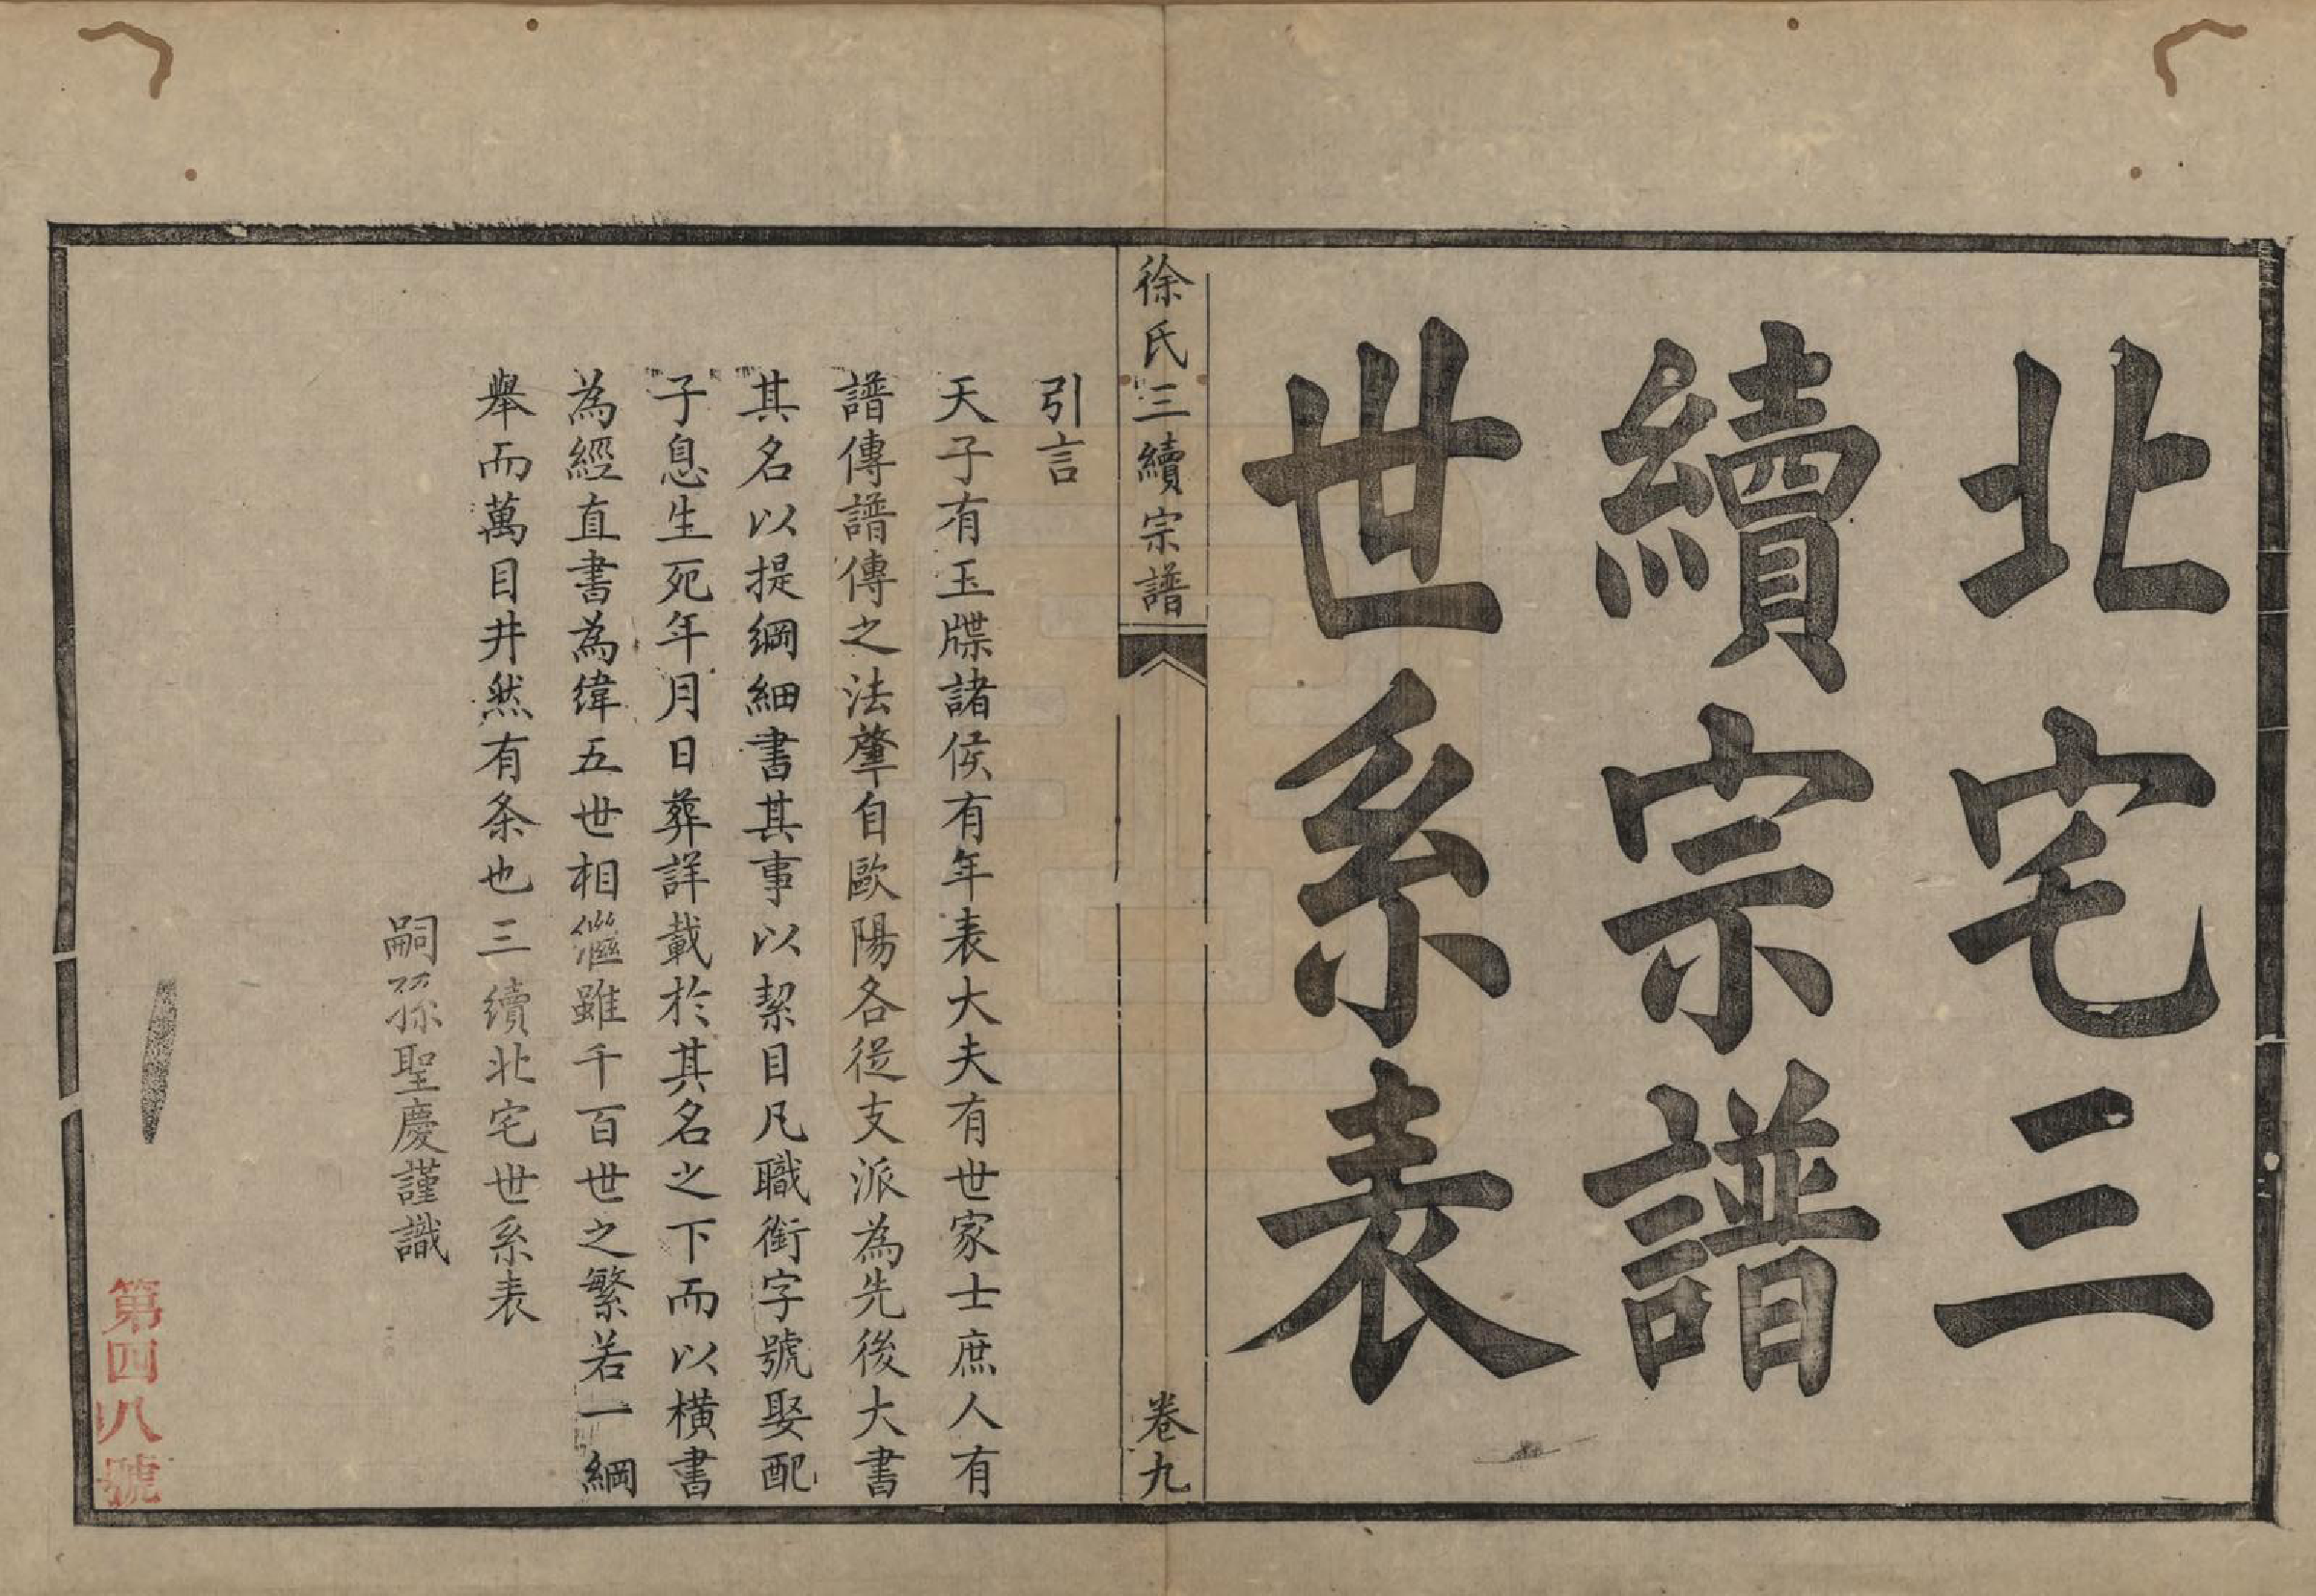 北宅三
續宗譜
世系表
徐氏三續宗譜
卷九
引言
天子有玉牒諸侯有年表大夫有世家士庶人有
譜傳譜傳之法肇自歐陽各從支派為先後大書
其名以提綱細書其事以挈目凡職銜字號娶配
子息生死年月日葬詳載於其名之下而以橫書
為經直書為緯五世相繼雖千百世之繁若一綱
舉而萬目井然有条也三續北宅世系表
嗣孫聖慶謹識
第四八號